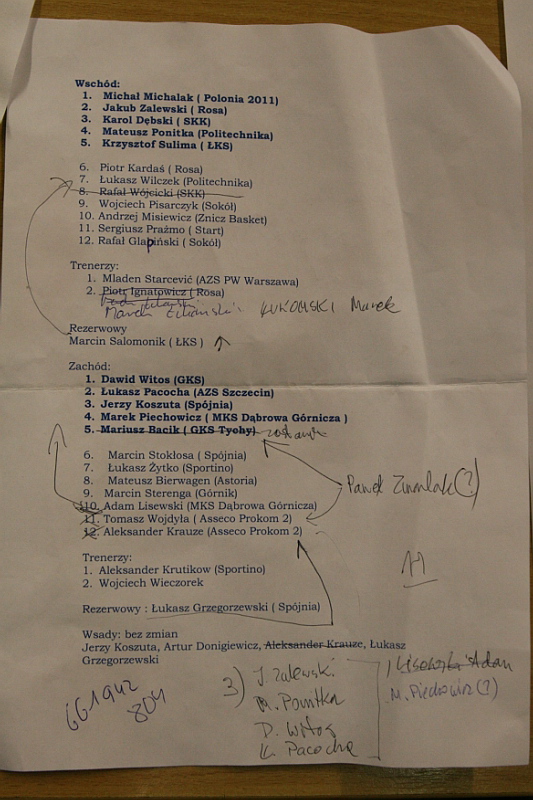 Wschód:
1. Michał Michalak ( Polonia 2011)
2. Jakub Zalewski ( Rosa)
3. Karol Dębski ( SKK)
4. Mateusz Ponitka (Politechnika)
5. Krzysztof Sulima ( ŁKS)
6. Piotr Kardaś ( Rosa)
7. Łukasz Wilczek (Politechnika)
8. Rafał Wójcicki (SKK)
9. Wojciech Pisarczyk (Sokół)
10. Andrzej Misiewicz (Znicz Basket)
11. Sergiusz Prażmo ( Start)
12. Rafał Glapiński ( Sokół)
Trenerzy:
1. Mladen Starcević (AZS PW Warszawa)
2. Piotr Ignatowicz ( Rosa)
Marek ŁUKOMSKI Marek
Rezerwowy
Marcin Salomonik ( ŁKS)
Zachód:
1. Dawid Witos (GKS)
2. Łukasz Pacocha (AZS Szczecin)
3. Jerzy Koszuta (Spójnia)
4. Marek Piechowicz ( MKS Dąbrowa Górnicza )
5. Mariusz Bacik ( GKS Tychy) zostaje
6. Marcin Stokłosa ( Spójnia)
7. Łukasz Żytko (Sportino)
8. Mateusz Bierwagen (Astoria)
Paweł (?)
9. Marcin Sterenga (Górnik)
10. Adam Lisewski (MKS Dąbrowa Górnicza)
11. Tomasz Wojdyła ( Asseco Prokom 2)
12. Aleksander Krauze (Asseco Prokom 2)
Trenerzy:
1. Aleksander Krutikow (Sportino)
2. Wojciech Wieczorek
Rezerwowy : Łukasz Grzegorzewski ( Spójnia)
Wsady: bez zmian
Jerzy Koszuta, Artur Donigiewicz, Aleksander Krauze, Łukasz
Grzegorzewski
Adam
3) J. Zalewski
M. Piechowicz (?)
M. Ponitka
D. Witos
Ł. Pacocha
661942
804